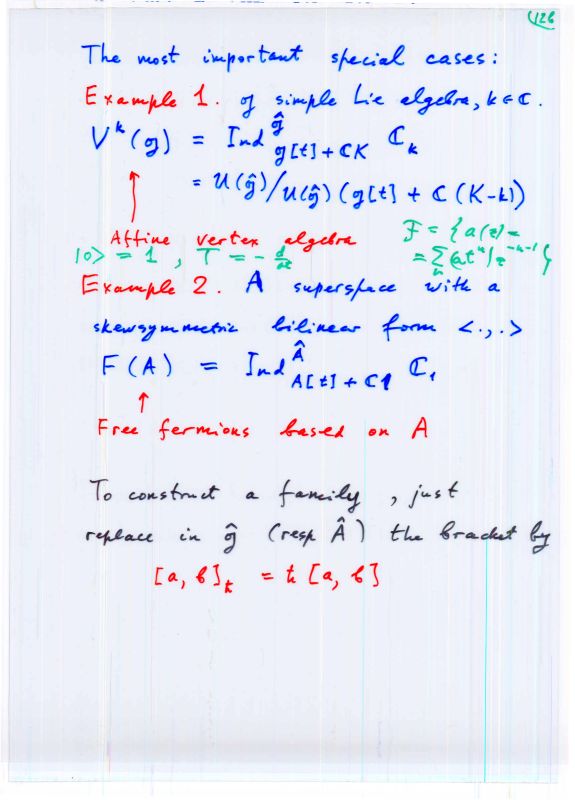 12b
The most important special cases:
Example 1. 𝔤 simple Lie algebra, k ∈ ℂ.
V^k(𝔤) = Ind^{ĝ}_{𝔤[t] + ℂK} ℂ_k
= U(ĝ)/U(ĝ)(𝔤[t] + ℂ(K-k))
Affine vertex algebra
F = {a(z) = = Σ_n (at^n) z^{-n-1}}
|0> = 1, T = - d/dt
Example 2. A superspace with a
skewsymmetric bilinear form <.,.>
F(A) = Ind^{Â}_{A[t] + ℂ1} ℂ_1
Free fermions based on A
To construct a family, just
replace in ĝ (resp Â) the bracket by
[a, b]_ħ = ħ [a, b]